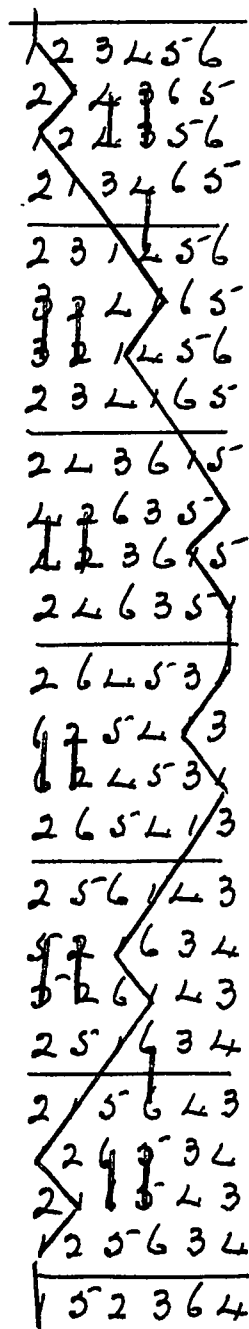 1 2 3 4 5 6
2 1 4 3 6 5
1 2 4 3 5 6
2 1 3 4 6 5
2 3 1 4 5 6
3 2 4 1 6 5
3 2 1 4 5 6
2 3 4 1 6 5
2 4 3 6 1 5
4 2 6 3 5 1
4 2 3 6 1 5
2 4 6 3 5 1
2 6 4 5 3 1
6 2 5 4 1 3
6 2 4 5 3 1
2 6 5 4 1 3
2 5 6 1 4 3
5 2 1 6 3 4
5 2 6 1 4 3
2 5 1 6 3 4
2 1 5 6 4 3
1 2 6 5 3 4
2 1 6 5 4 3
1 2 5 6 3 4
1 5 2 3 6 4